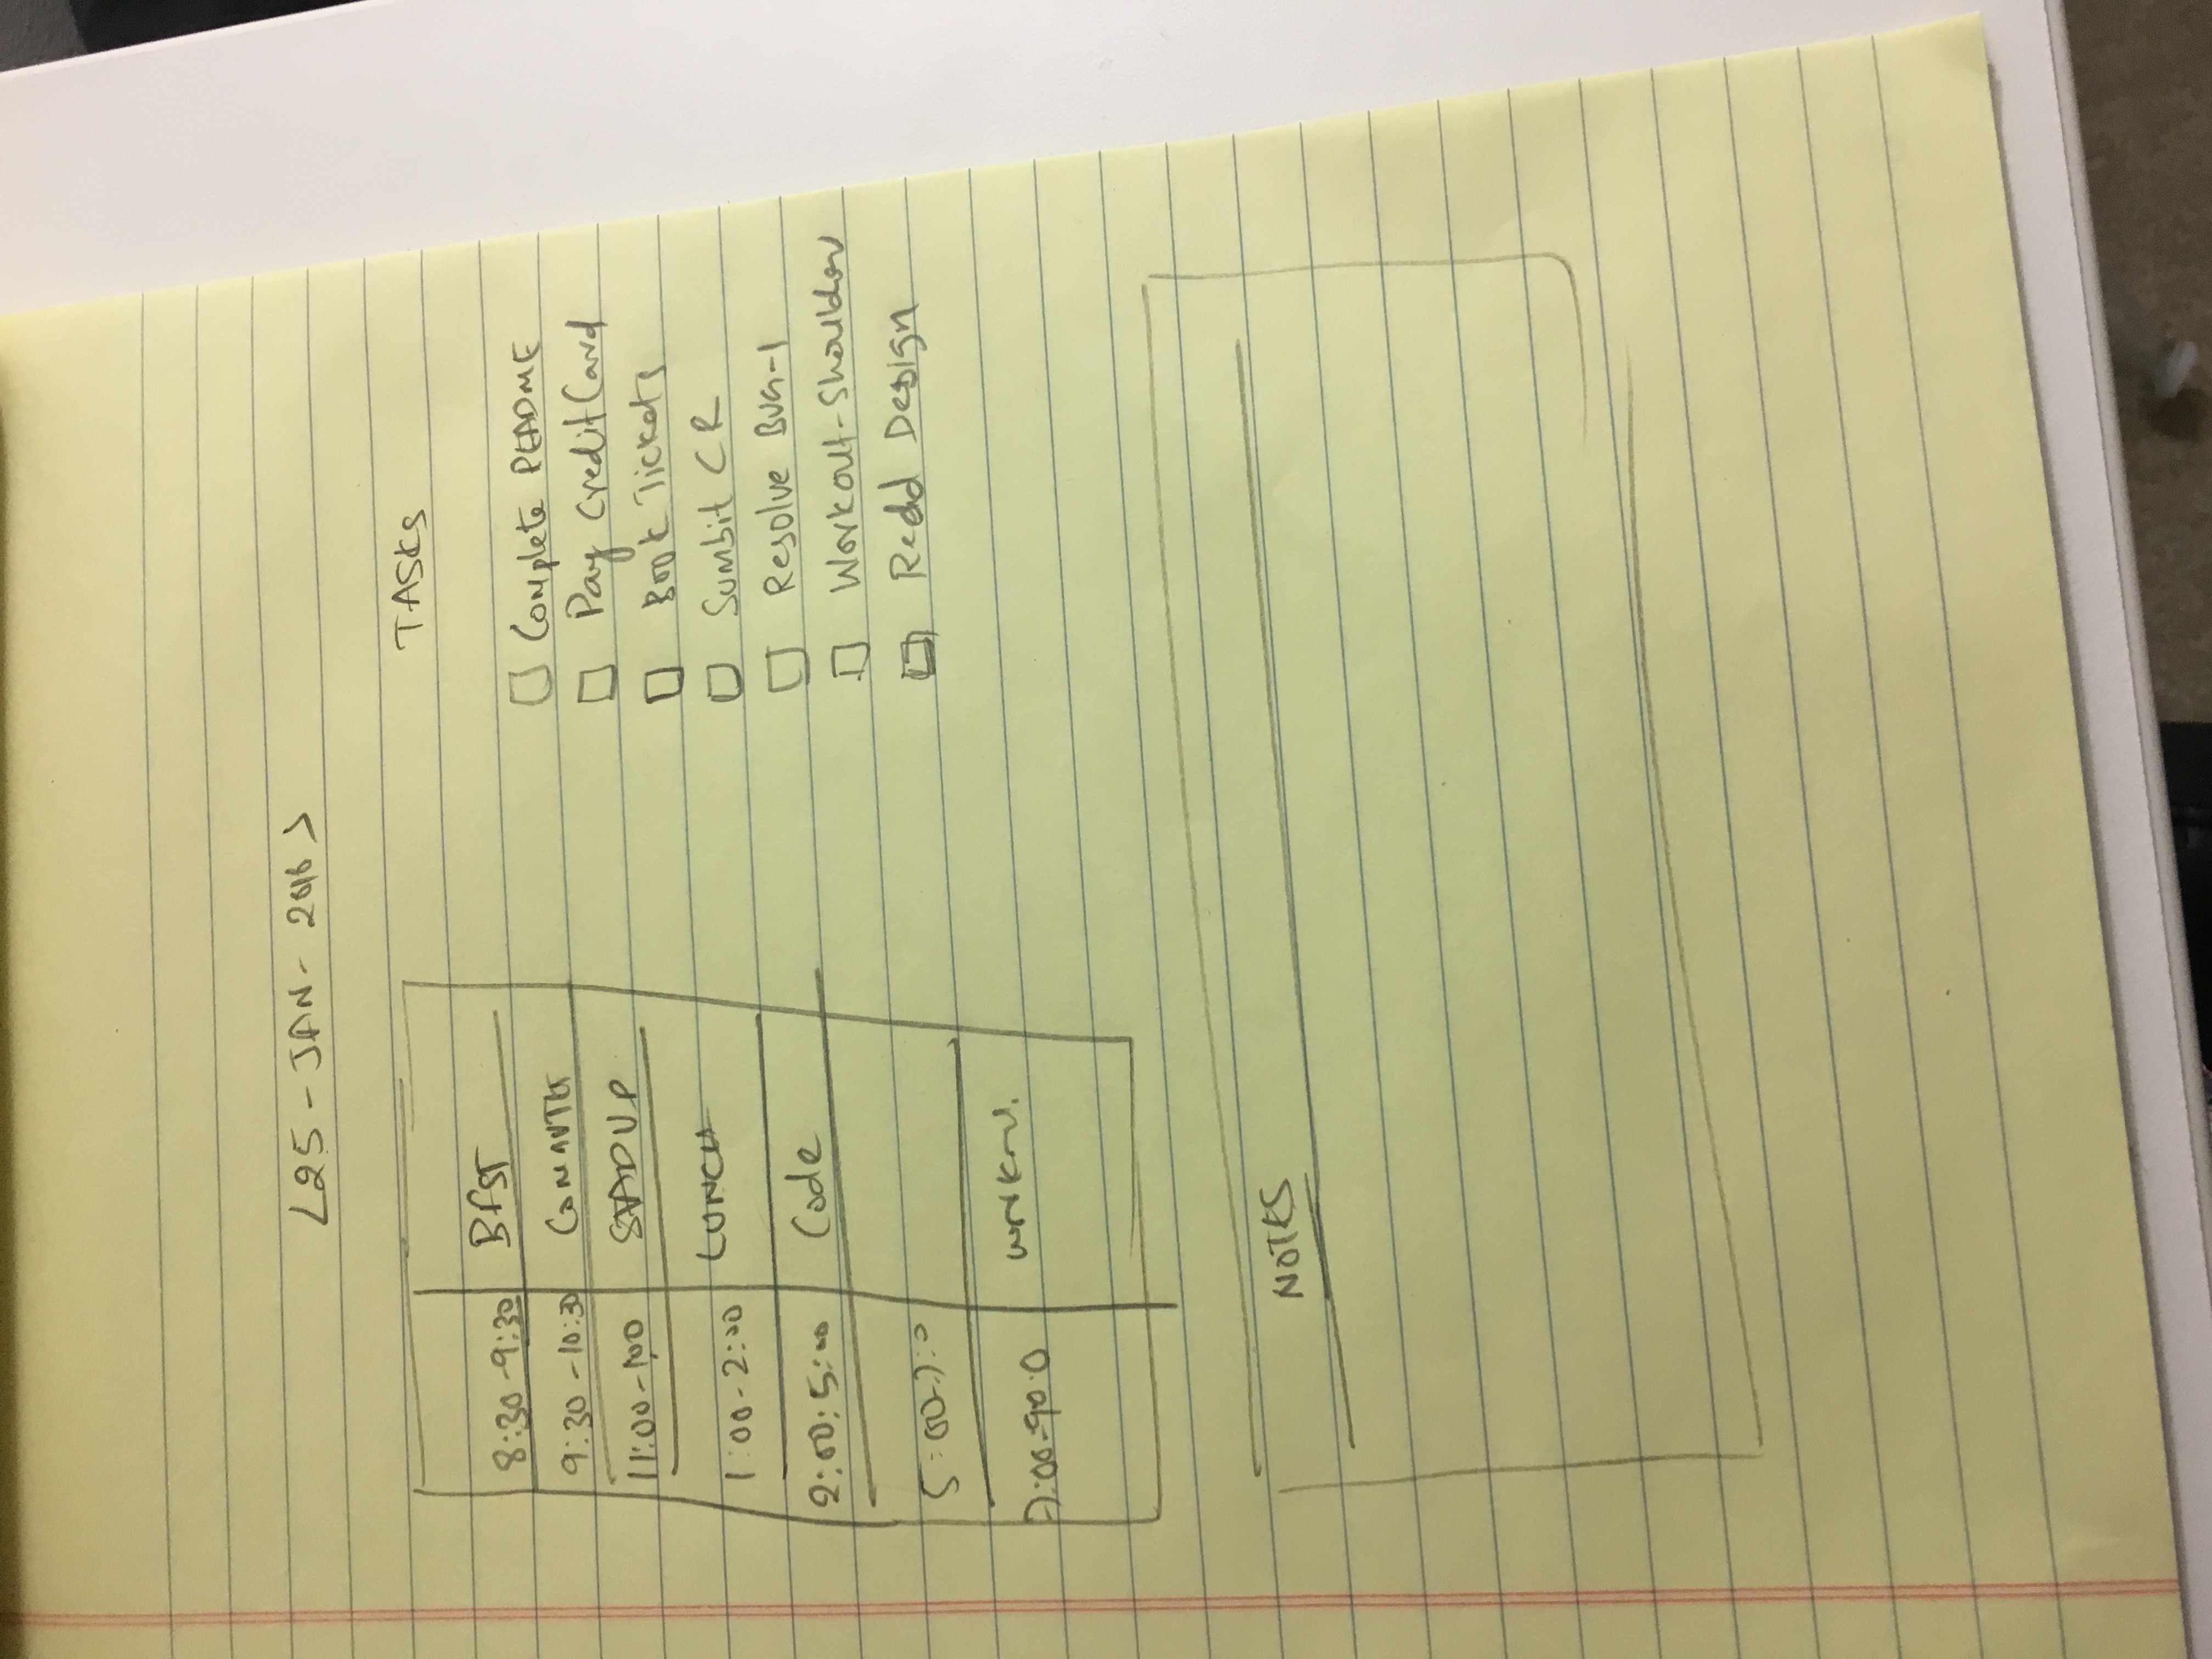 <25-JAN-2016>
TASKS
8:30-9:30 BfST
9:30-10:30
11:00-1:00 STADUP
1:00-2:00 LUNCH
2:00:5:00 Code
5:00-7:0
7:00-90:0
Complete README
Pay Credit Card
Book Tickets
Sumbit CR
Resolve BUG-1
Workout-Shoulder
Read Design
NOTES